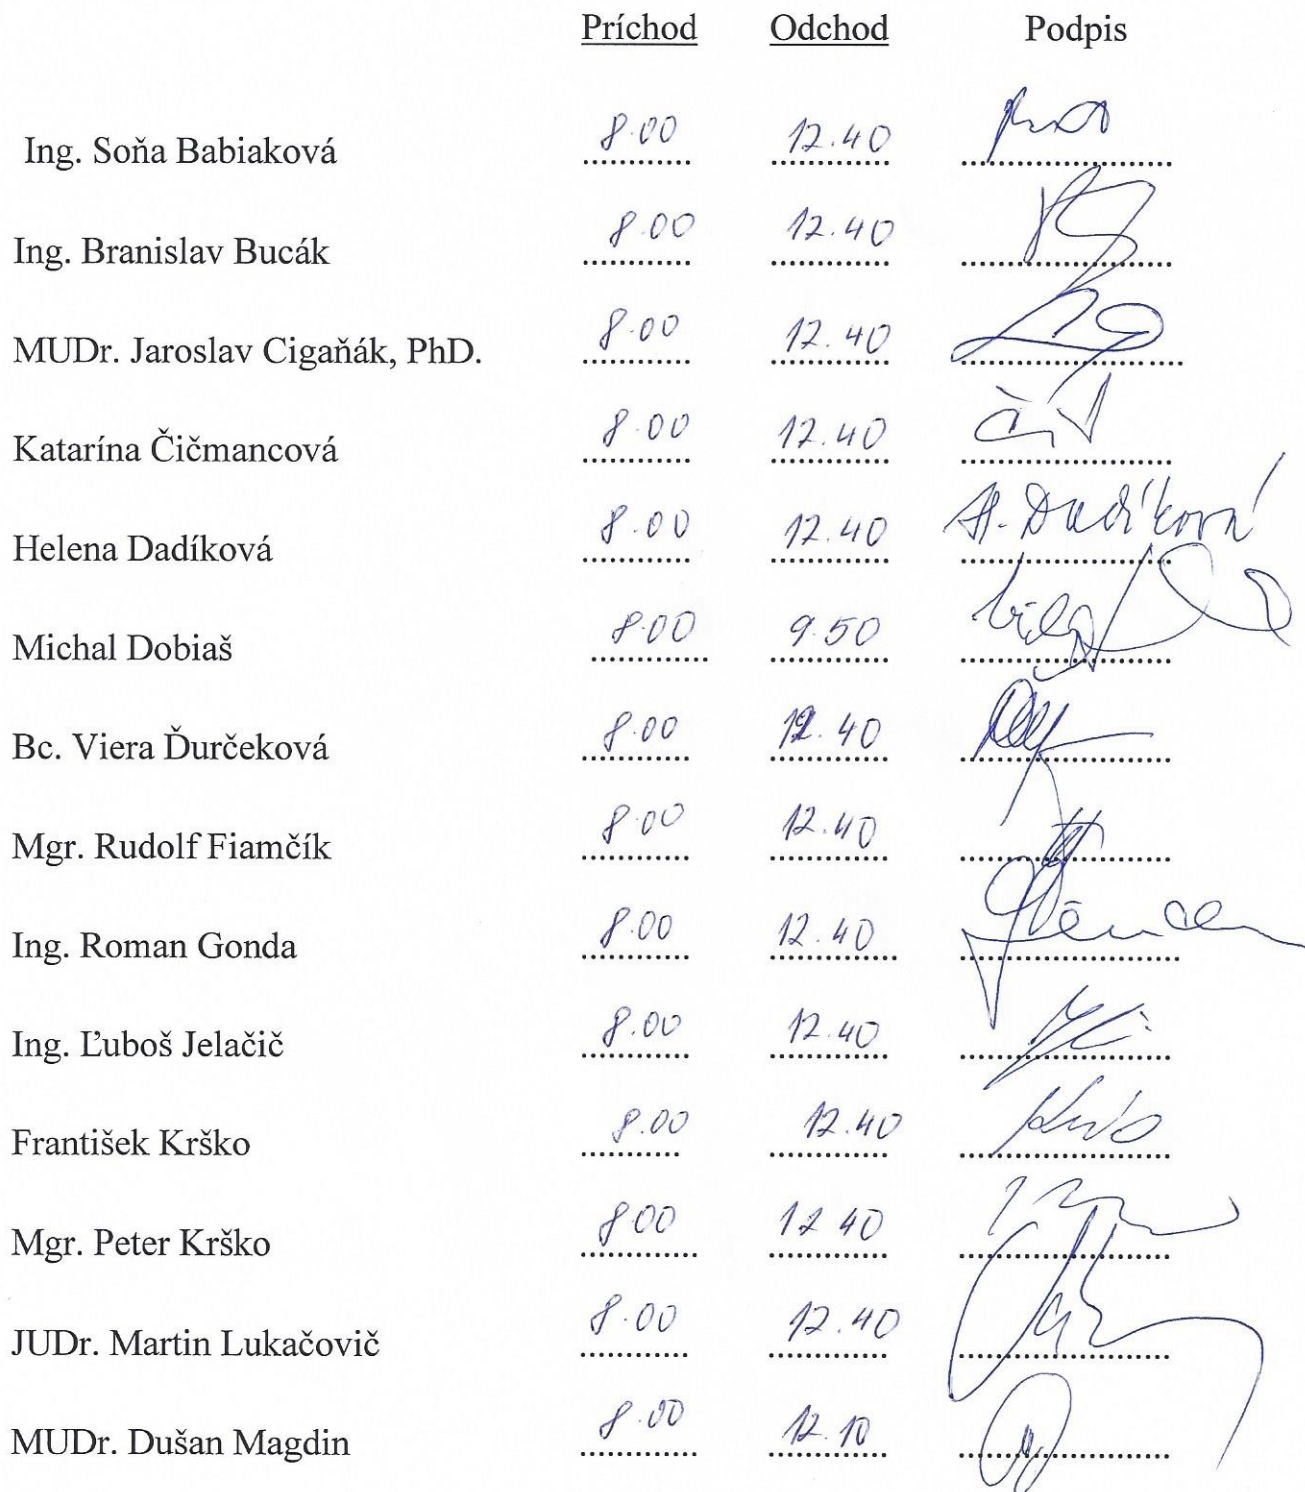 Príchod Odchod Podpis
Ing. Soňa Babiaková 8.00 12.40
Ing. Branislav Bucák 8.00 12.40
MUDr. Jaroslav Cigaňák, PhD. 8.00 12.40
Katarína Čičmancová 8.00 12.40
Helena Dadíková 8.00 12.40 H. Dadíková
Michal Dobiaš 8.00 9.50
Bc. Viera Ďurčeková 8.00 12.40
Mgr. Rudolf Fiamčík 8.00 12.40
Ing. Roman Gonda 8.00 12.40
Ing. Ľuboš Jelačič 8.00 12.40
František Krško 8.00 12.40
Mgr. Peter Krško 8.00 12.40
JUDr. Martin Lukačovič 8.00 12.40
MUDr. Dušan Magdin 8.00 12.10